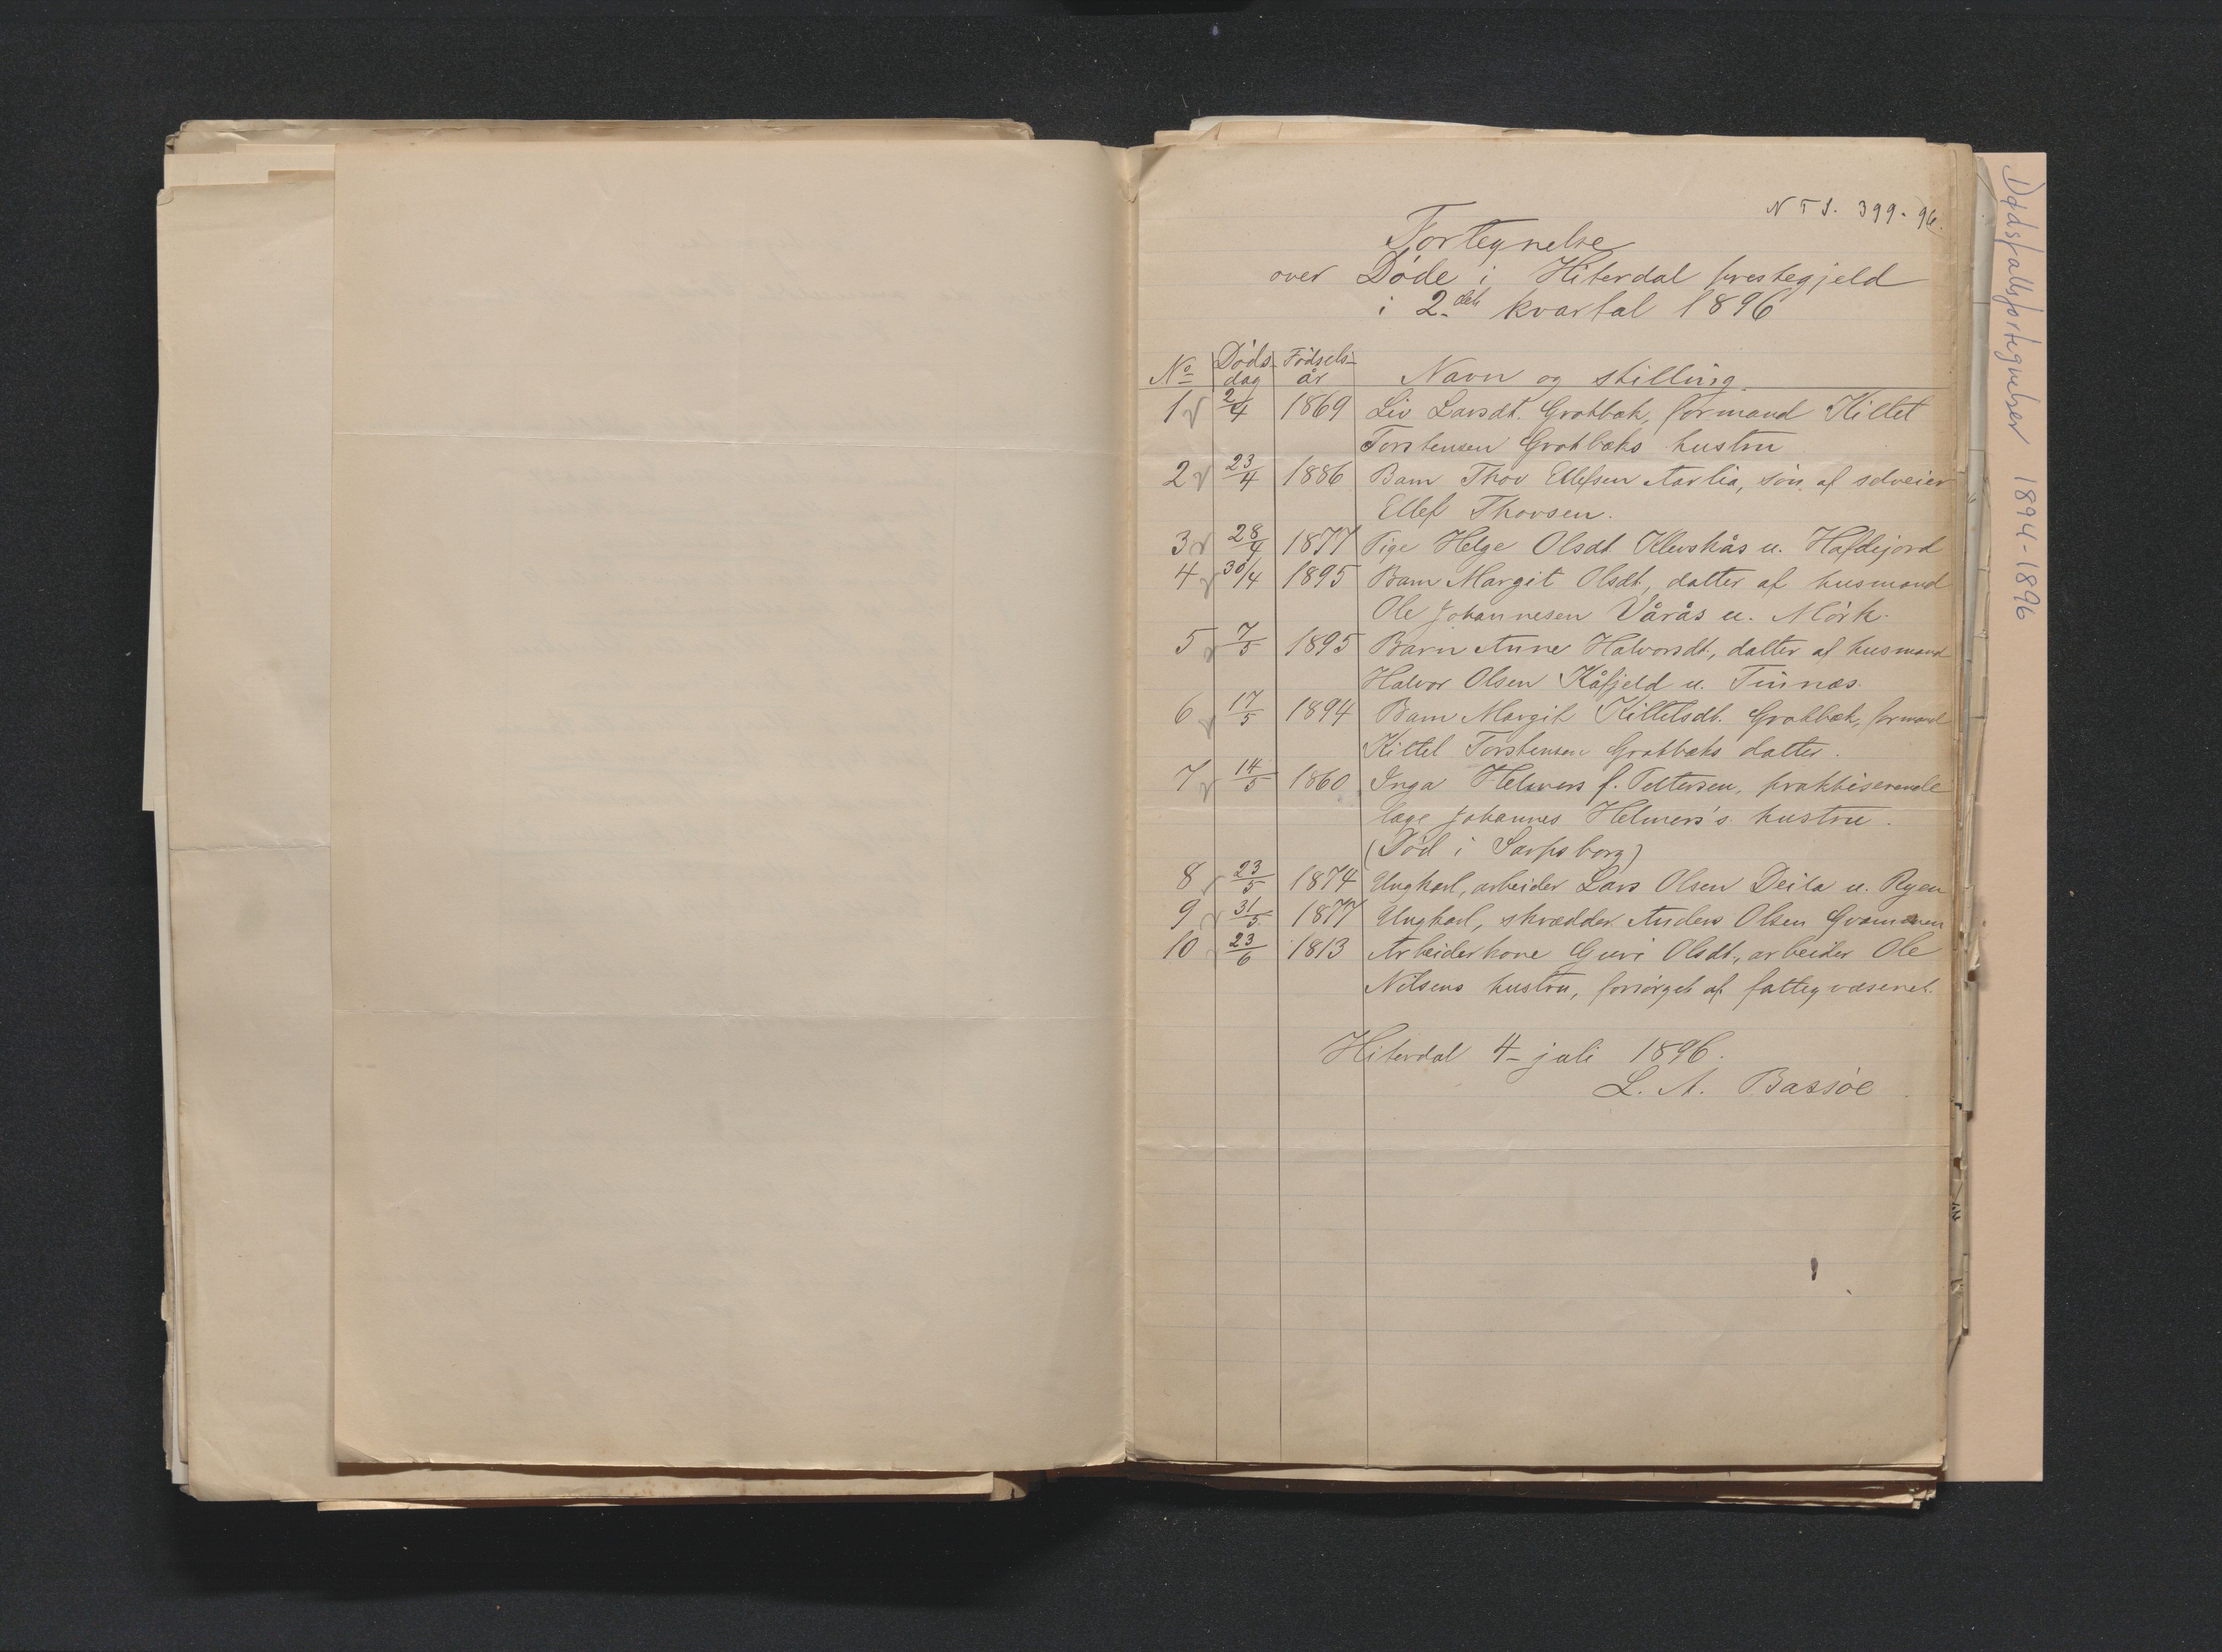 N T S. 399-96.
Fortegnelse
over Døde i Hiterdal prestegjeld
i 2det kvartal 1896
No Døds- dag Fødsels- år Navn og stilling.
1 2/4 1869 Liv Larsdt. Grotbæk, formand Kittel
Torstensen Grotbæks hustru
2 23/4 1886 Barn Thov Ellefsen Aarlia, søn af selveier
Ellef Thovsen.
3 28/4 1877 Pige Helge Olsdt. Klevskås u. Hafdijord
4 30/4 1895 Barn Margit Olsdt, datter af husmand
Ole Johannesen Vårås u. Mørk.
5 7/5 1895 Barn Anne Halvorsdt., datter af husmand
Halvor Olsen Kåfjeld u. Tinnæs.
6 17/5 1894 Barn Margit Kittelsdt. Grotbæk, formand
Kittel Torstensen Grotbæks datter.
7 14/5 1860 Inga Helmers f. Pettersen, praktiserende
læge Johannes Helmers's hustru.
(Død i Sarpsborg)
8 23/5 1874 Ungkarl, arbeider Lars Olsen Deila u. Ryen
9 31/5 1877 Ungkarl, skrædder Anders Olsen Grammen
10 23/6 1813 Arbeiderkone Guri Olsdt., arbeider Ole
Nilsens hustru, forsørget af fattigvæsenet.
Hiterdal 4- juli 1896.
L. A. Bassøe
Dødsfallsfortegnelser 1894-1896